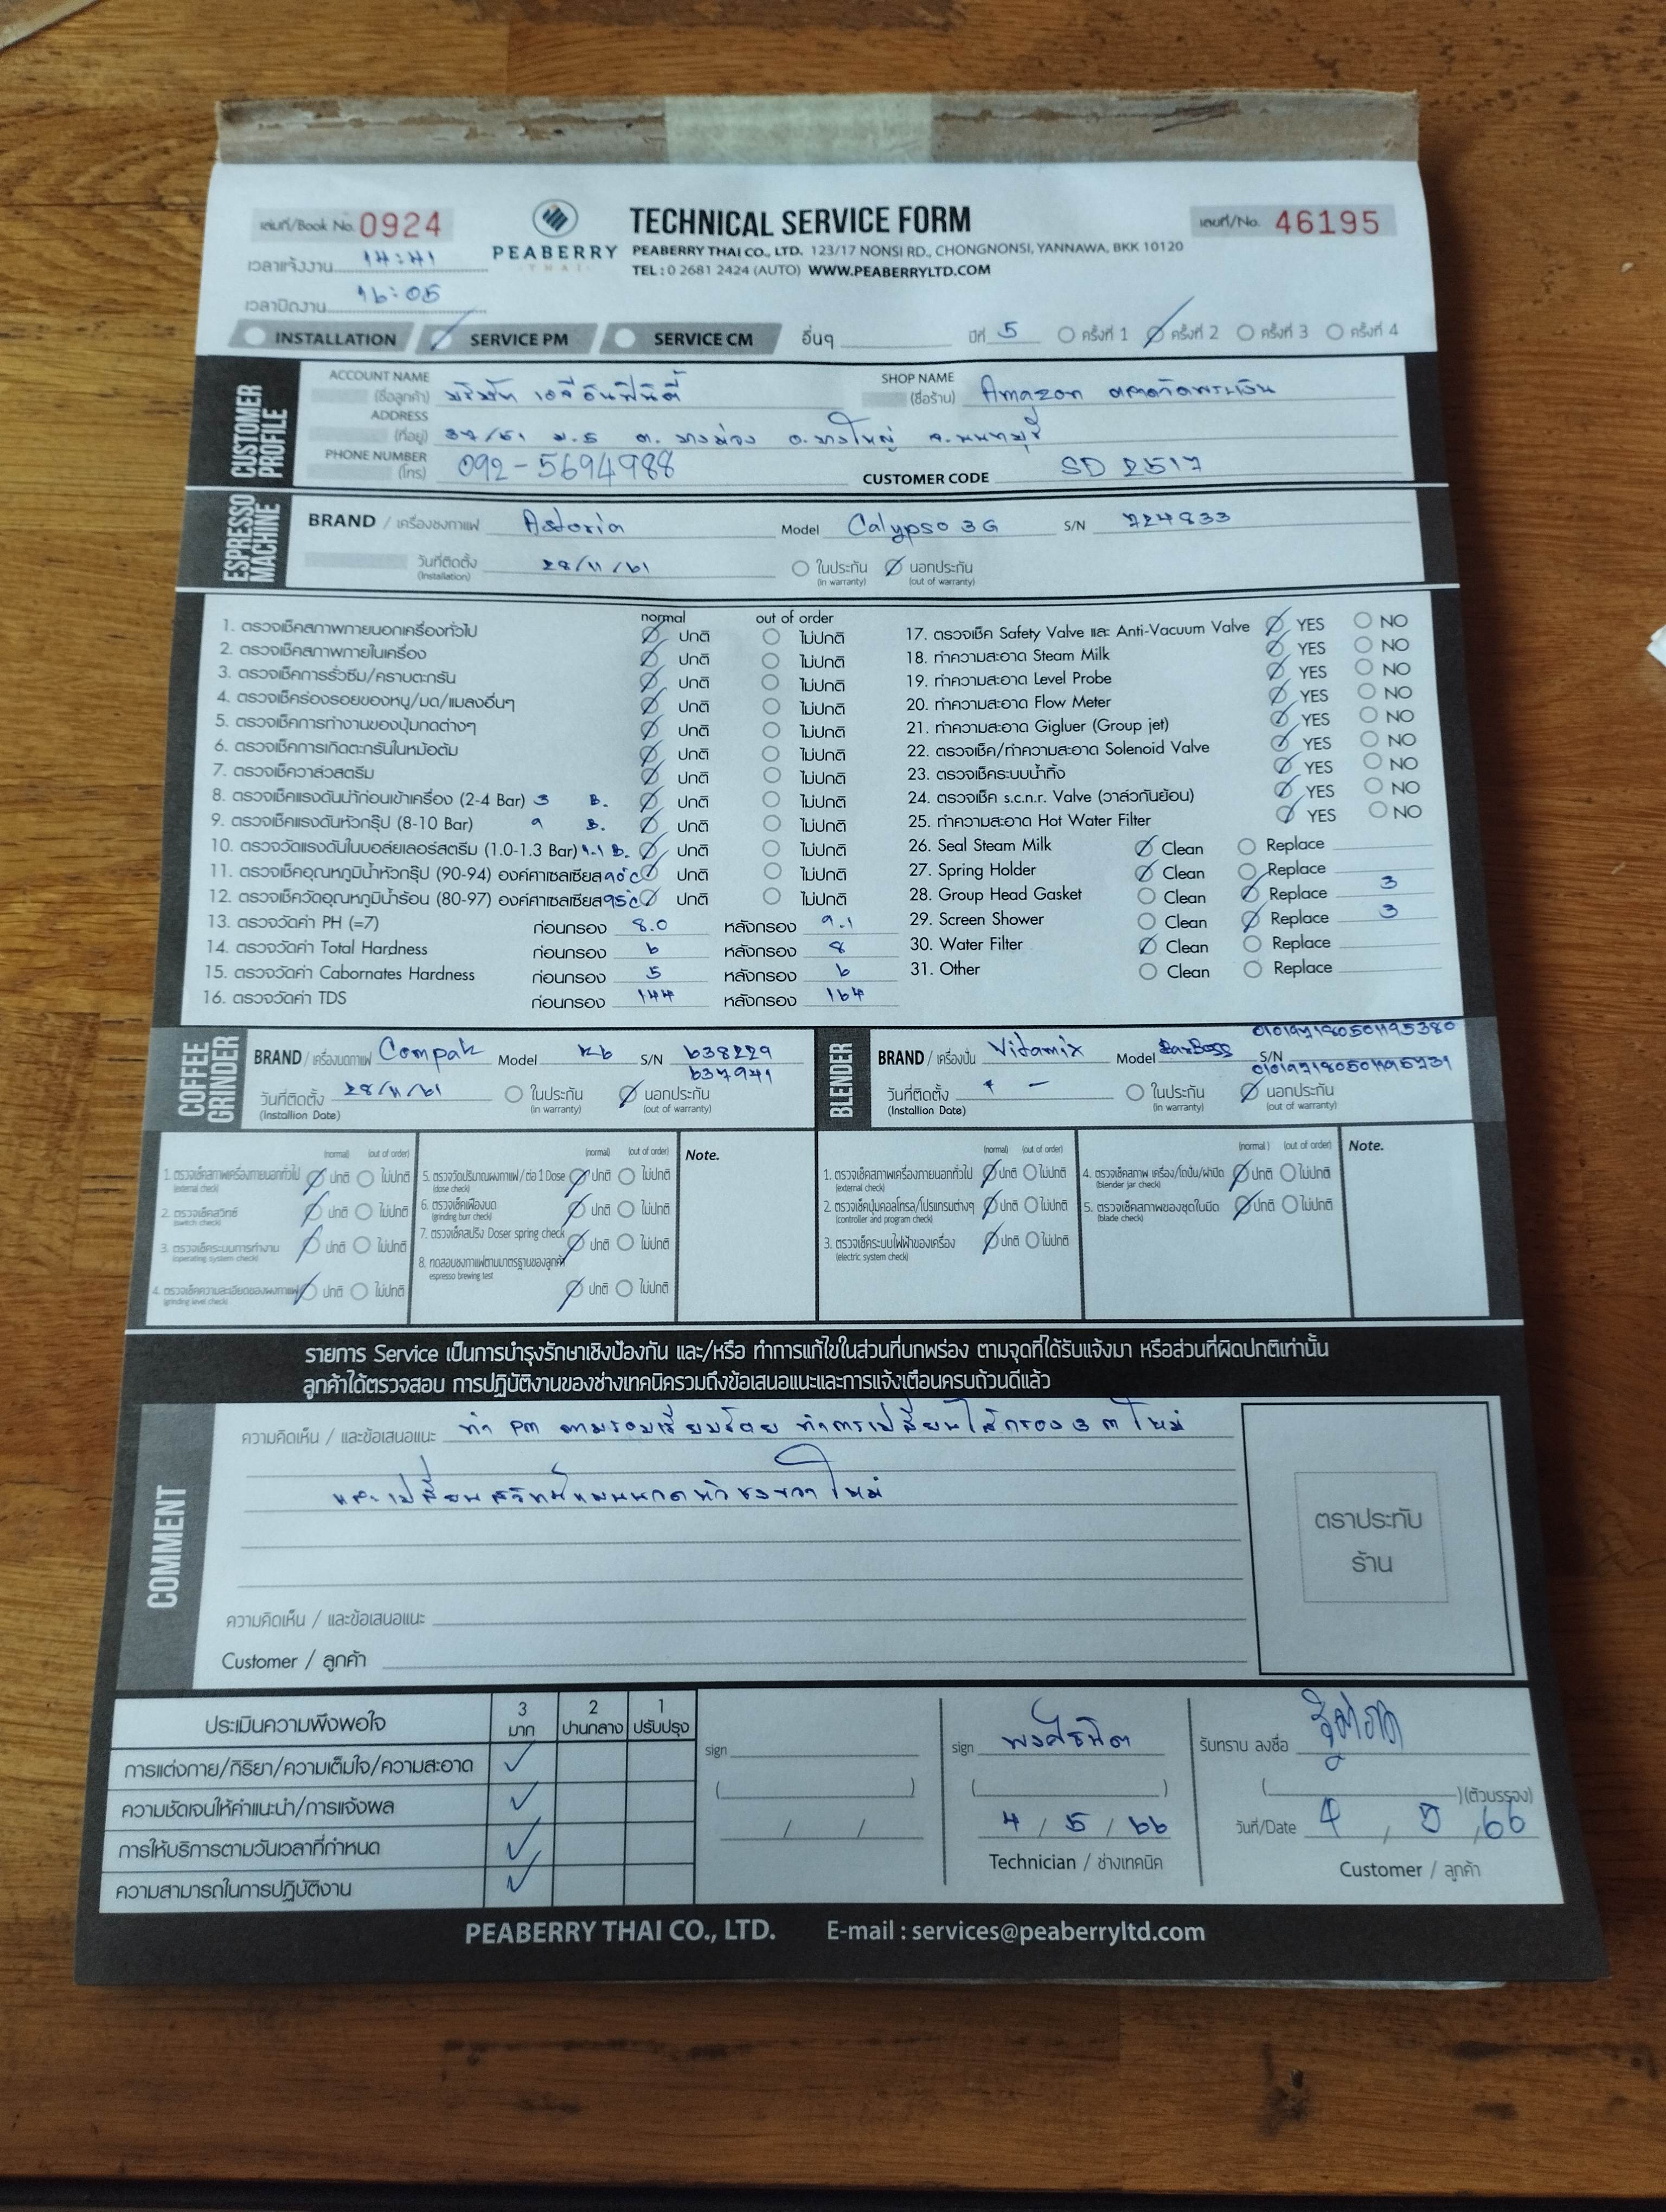 เล่มที่/Book No. 0924
PEABERRY
THAI
TECHNICAL SERVICE FORM
PEABERRY THAI CO., LTD. 123/17 NONSI RD., CHONGNONSI, YANNAWA, BKK 10120
TEL : 0 2681 2424 (AUTO) WWW.PEABERRYLTD.COM
เลขที่/No. 46195
เวลาแจ้งงาน 14:41
เวลาปิดงาน 16:05
INSTALLATION SERVICE PM SERVICE CM อื่นๆ ปีที่ 5 ครั้งที่ 1 ครั้งที่ 2 ครั้งที่ 3 ครั้งที่ 4
CUSTOMER PROFILE
ACCOUNT NAME (ชื่อลูกค้า) บริษัท เอจีอินฟินิตี้ SHOP NAME (ชื่อร้าน) Amazon ตลาดวัดพระเงิน
ADDRESS (ที่อยู่) 37/51 ม.5 ต. บางม่วง อ.บางใหญ่ จ.นนทบุรี
PHONE NUMBER (โทร) 092-5694988 CUSTOMER CODE SD 2517
ESPRESSO MACHINE
BRAND / เครื่องชงกาแฟ Astoria Model Calypso 3G S/N 724833
วันที่ติดตั้ง (Installation) 28/11/61 ในประกัน (in warranty) นอกประกัน (out of warranty)
normal out of order
1. ตรวจเช็คสภาพภายนอกเครื่องทั่วไป ปกติ ไม่ปกติ
2. ตรวจเช็คสภาพภายในเครื่อง ปกติ ไม่ปกติ
3. ตรวจเช็คการรั่วซึม/คราบตะกรัน ปกติ ไม่ปกติ
4. ตรวจเช็คร่องรอยของหนู/มด/แมลงอื่นๆ ปกติ ไม่ปกติ
5. ตรวจเช็คการทำงานของปุ่มกดต่างๆ ปกติ ไม่ปกติ
6. ตรวจเช็คการเกิดตะกรันในหม้อต้ม ปกติ ไม่ปกติ
7. ตรวจเช็ควาล์วสตรีม ปกติ ไม่ปกติ
8. ตรวจเช็คแรงดันน้ำก่อนเข้าเครื่อง (2-4 Bar) 3 B. ปกติ ไม่ปกติ
9. ตรวจเช็คแรงดันหัวกรุ๊ป (8-10 Bar) 9 B. ปกติ ไม่ปกติ
10. ตรวจวัดแรงดันในบอล์ยเลอร์สตรีม (1.0-1.3 Bar) 1.1 B. ปกติ ไม่ปกติ
11. ตรวจเช็คอุณหภูมิน้ำหัวกรุ๊ป (90-94) องศาเซลเซียส 90°C ปกติ ไม่ปกติ
12. ตรวจเช็ควัดอุณหภูมิน้ำร้อน (80-97) องศาเซลเซียส 95°C ปกติ ไม่ปกติ
13. ตรวจวัดค่า PH (=7) ก่อนกรอง 8.0 หลังกรอง 9.1
14. ตรวจวัดค่า Total Hardness ก่อนกรอง 6 หลังกรอง 8
15. ตรวจวัดค่า Cabornates Hardness ก่อนกรอง 5 หลังกรอง 6
16. ตรวจวัดค่า TDS ก่อนกรอง 144 หลังกรอง 164
17. ตรวจเช็ค Safety Valve และ Anti-Vacuum Valve YES NO
18. ทำความสะอาด Steam Milk YES NO
19. ทำความสะอาด Level Probe YES NO
20. ทำความสะอาด Flow Meter YES NO
21. ทำความสะอาด Gigluer (Group jet) YES NO
22. ตรวจเช็ค/ทำความสะอาด Solenoid Valve YES NO
23. ตรวจเช็คระบบน้ำทิ้ง YES NO
24. ตรวจเช็ค s.c.n.r. Valve (วาล์วกันย้อน) YES NO
25. ทำความสะอาด Hot Water Filter YES NO
26. Seal Steam Milk Clean Replace
27. Spring Holder Clean Replace
28. Group Head Gasket Clean Replace 3
29. Screen Shower Clean Replace 3
30. Water Filter Clean Replace
31. Other Clean Replace
COFFEE GRINDER
BRAND / เครื่องบดกาแฟ Compak Model K6 S/N 638229
637941
วันที่ติดตั้ง (Installion Date) 28/11/61 ในประกัน (in warranty) นอกประกัน (out of warranty)
BLENDER
010197180501195380
BRAND / เครื่องปั่น Vitamix Model BarBoss S/N
วันที่ติดตั้ง (Installion Date) - ในประกัน (in warranty) นอกประกัน (out of warranty)
(normal) (out of order)
1. ตรวจเช็คสภาพเครื่องภายนอกทั่วไป (external check) ปกติ ไม่ปกติ
2. ตรวจเช็คสวิทช์ (switch check) ปกติ ไม่ปกติ
3. ตรวจเช็คระบบการทำงาน (operating system check) ปกติ ไม่ปกติ
4. ตรวจเช็คความละเอียดของผงกาแฟ (grinding level check) ปกติ ไม่ปกติ
(normal) (out of order)
5. ตรวจวัดปริมาณผงกาแฟ/ ต่อ 1 Dose (dose check) ปกติ ไม่ปกติ
6. ตรวจเช็คเฟืองบด (grinding burr check) ปกติ ไม่ปกติ
7. ตรวจเช็คสปริง Doser spring check ปกติ ไม่ปกติ
8. ทดสอบชงกาแฟตามมาตรฐานของลูกค้า espresso brewing test ปกติ ไม่ปกติ
Note.
(normal) (out of order)
1. ตรวจเช็คสภาพเครื่องภายนอกทั่วไป (external check) ปกติ ไม่ปกติ
2. ตรวจเช็คปุ่มคอลโทรล/โปรแกรมต่างๆ (controller and program check) ปกติ ไม่ปกติ
3. ตรวจเช็คระบบไฟฟ้าของเครื่อง (electric system check) ปกติ ไม่ปกติ
(normal) (out of order)
4. ตรวจเช็คสภาพ เครื่อง/โถปั่น/ฝาปิด (blender jar check) ปกติ ไม่ปกติ
5. ตรวจเช็คสภาพของชุดใบมีด (blade check) ปกติ ไม่ปกติ
Note.
รายการ Service เป็นการบำรุงรักษาเชิงป้องกัน และ/หรือ ทำการแก้ไขในส่วนที่บกพร่อง ตามจุดที่ได้รับแจ้งมา หรือส่วนที่ผิดปกติเท่านั้น
ลูกค้าได้ตรวจสอบ การปฏิบัติงานของช่างเทคนิครวมถึงข้อเสนอแนะและการแจ้งเตือนครบถ้วนดีแล้ว
COMMENT
ความคิดเห็น / และข้อเสนอแนะ ทำ PM ตามรอบเรียบร้อย ทำการเปลี่ยนไส้กรอง 3 ตัวใหม่
และเปลี่ยนสวิทช์แผงกดหัวชงขวาใหม่
ตราประทับ
ร้าน
ความคิดเห็น / และข้อเสนอแนะ
Customer / ลูกค้า
ประเมินความพึงพอใจ 3 มาก 2 ปานกลาง 1 ปรับปรุง
การแต่งกาย/กิริยา/ความเต็มใจ/ความสะอาด
ความชัดเจนให้คำแนะนำ/การแจ้งผล
การให้บริการตามวันเวลาที่กำหนด
ความสามารถในการปฏิบัติงาน
sign
( )
/ /
sign
( )
4 / 5 / 66
Technician / ช่างเทคนิค
รับทราบ ลงชื่อ
( ) (ตัวบรรจง)
วันที่/Date 4 , 5 , 66
Customer / ลูกค้า
PEABERRY THAI CO., LTD. E-mail : services@peaberryltd.com